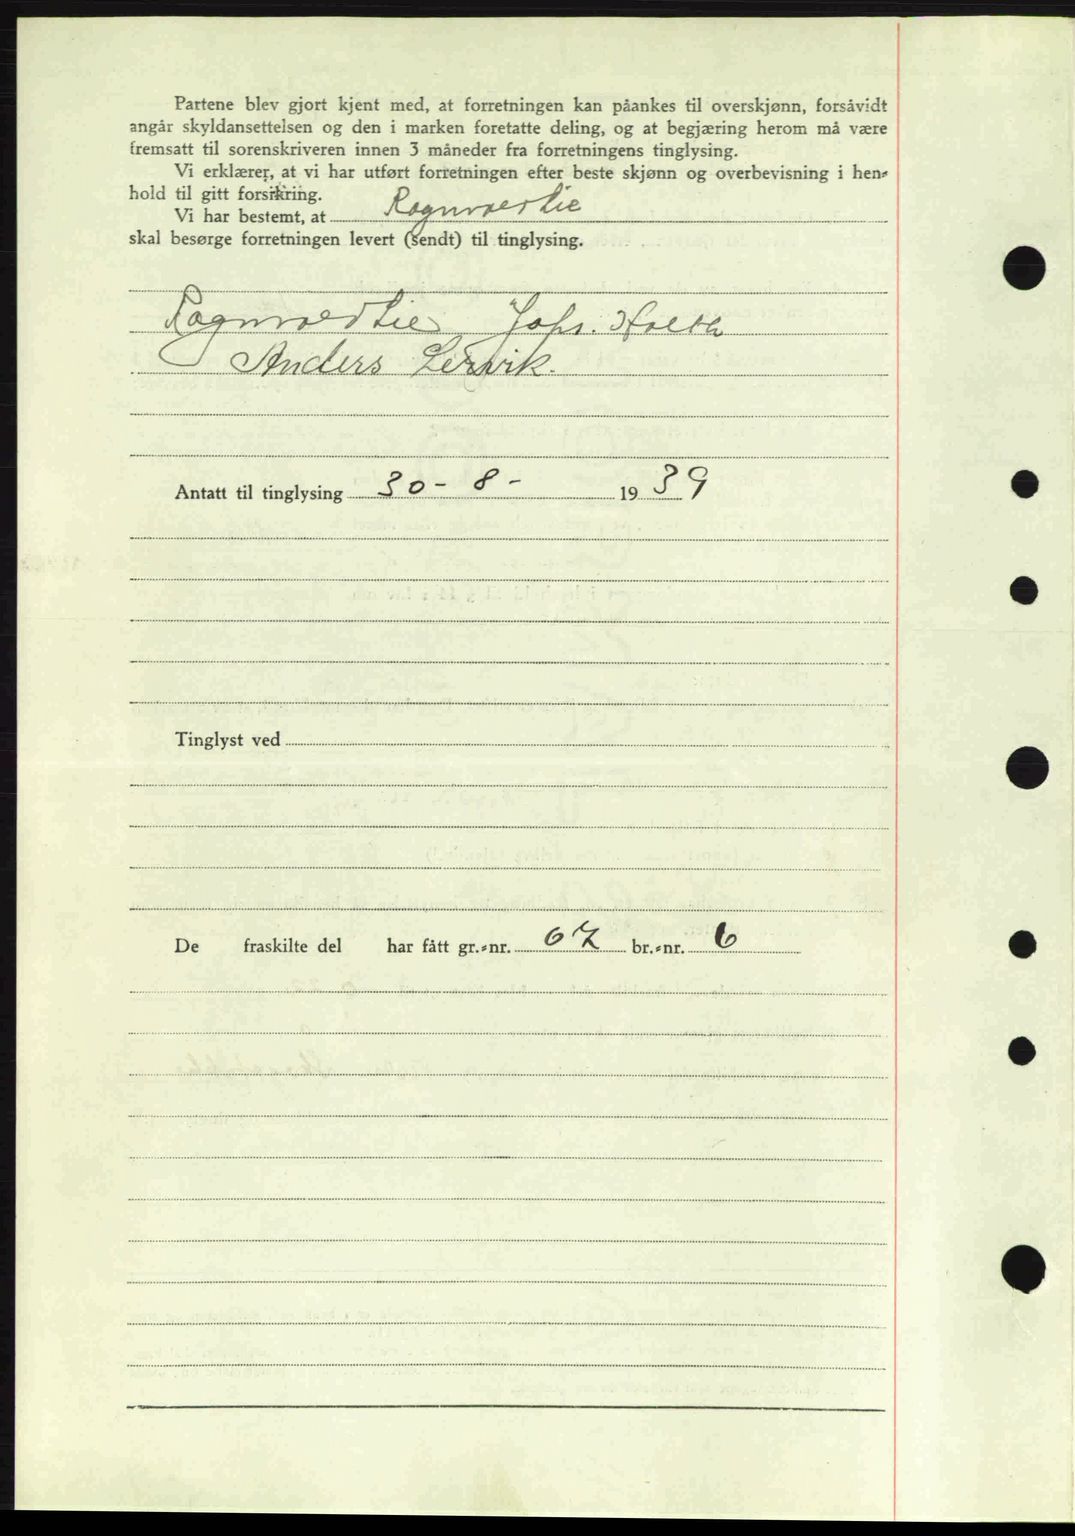 Partene blev gjort kjent med, at forretningen kan påankes til overskjønn, forsåvidt
angår skyldansettelsen og den i marken foretatte deling, og at begjæring herom må være
fremsatt til sorenskriveren innen 3 måneder fra forretningens tinglysing.
Vi erklærer, at vi har utført forretningen efter beste skjønn og overbevisning i hen-
hold til gitt forsikring.
Vi har bestemt, at Ragnvald Lie
skal besørge forretningen levert (sendt) til tinglysing.
Ragnvald Lie Johs. Holth
Anders Lervik.
Antatt til tinglysing 30-8- 1939
Tinglyst ved
De fraskilte del har fått gr.-nr. 67 br.-nr. 6